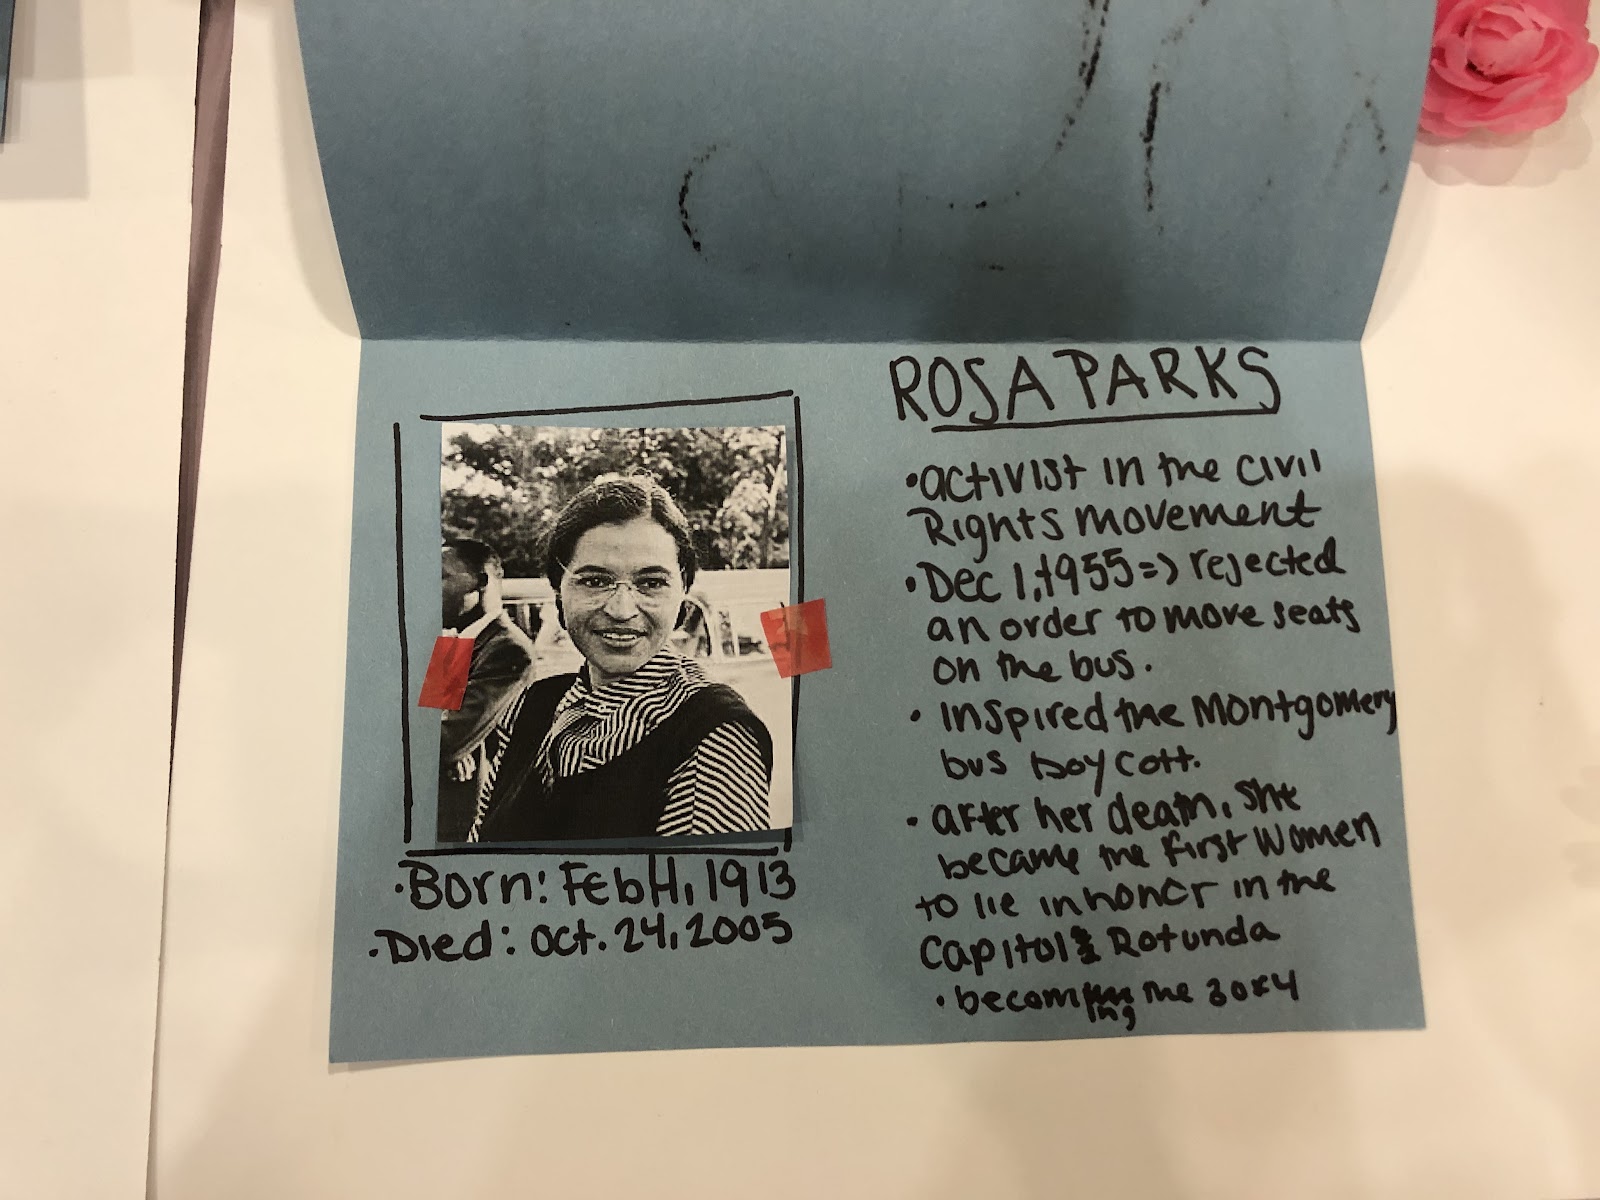 ROSA PARKS
• activist in the civil
Rights movement
• Dec 1, 1955 => rejected
an order to move seats
on the bus.
• inspired the Montgomery
bus boycott.
• after her death, she
became the first women
to lie in honor in the
Capitol Rotunda
• becoming the
• Born: Feb 4, 1913
• Died: Oct. 24, 2005